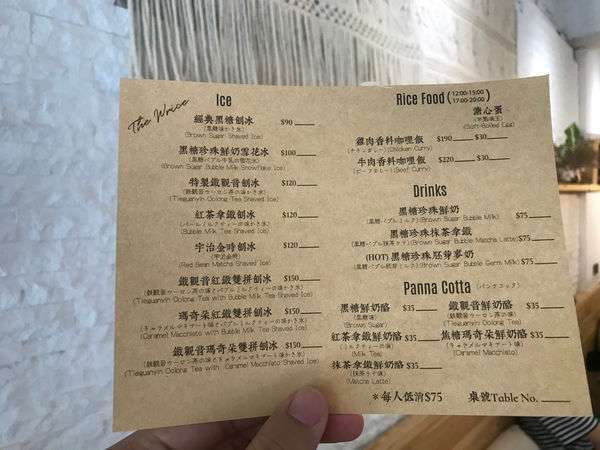 The Wrice
Ice
經典黑糖刨冰 $90
(黒糖味かき氷)
(Brown Sugar Shaved Ice)
黑糖珍珠鮮奶雪花冰 $100
(Brown Sugar Bubble Milk Snowflake Ice)
特製鐵觀音刨冰 $120
(Tieguanyin Oolong Tea Shaved Ice)
紅茶拿鐵刨冰 $120
(Bubble Milk Tea Shaved Ice)
宇治金時刨冰 $120
(宇治金時)
(Red Bean Matcha Shaved Ice)
鐵觀音紅鐵雙拼刨冰 $150
(Tieguanyin Oolong Tea with Bubble Milk Tea Shaved Ice)
瑪奇朵紅鐵雙拼刨冰 $150
(Caramel Macchiato with Bubble Milk Tea Shaved Ice)
鐵觀音瑪奇朵雙拼刨冰 $150
(Tieguanyin Oolong Tea with Caramel Macchiato Shaved Ice)
Rice Food (12:00-15:00 17:00-20:00)
溏心蛋
(Soft-Boiled Egg)
雞肉香料咖哩飯 $190 $30
(チキンカレー)(Chicken Curry)
牛肉香料咖哩飯 $220 $30
(ビーフカレー)(Beef Curry)
Drinks
黑糖珍珠鮮奶
(黒糖バブルミルク)(Brown Sugar Bubble Milk) $75
黑糖珍珠抹茶拿鐵
(黒糖バブル抹茶ラテ)(Brown Sugar Bubble Matcha Latte) $75
(HOT) 黑糖珍珠胚芽麥奶
(Brown Sugar Bubble Germ Milk) $75
Panna Cotta (パンナコッタ)
黑糖鮮奶酪 $35 鐵觀音鮮奶酪 $35
(黒糖味)
(Brown Sugar) (Tieguanyin Oolong Tea)
紅茶拿鐵鮮奶酪 $35 焦糖瑪奇朵鮮奶酪 $35
(ミルクティー味) (キャラメルマキアート味)
(Milk Tea) (Caramel Macchiato)
抹茶拿鐵鮮奶酪 $35
(抹茶ラテ味)
(Matcha Latte)
*每人低消$75 桌號Table No.